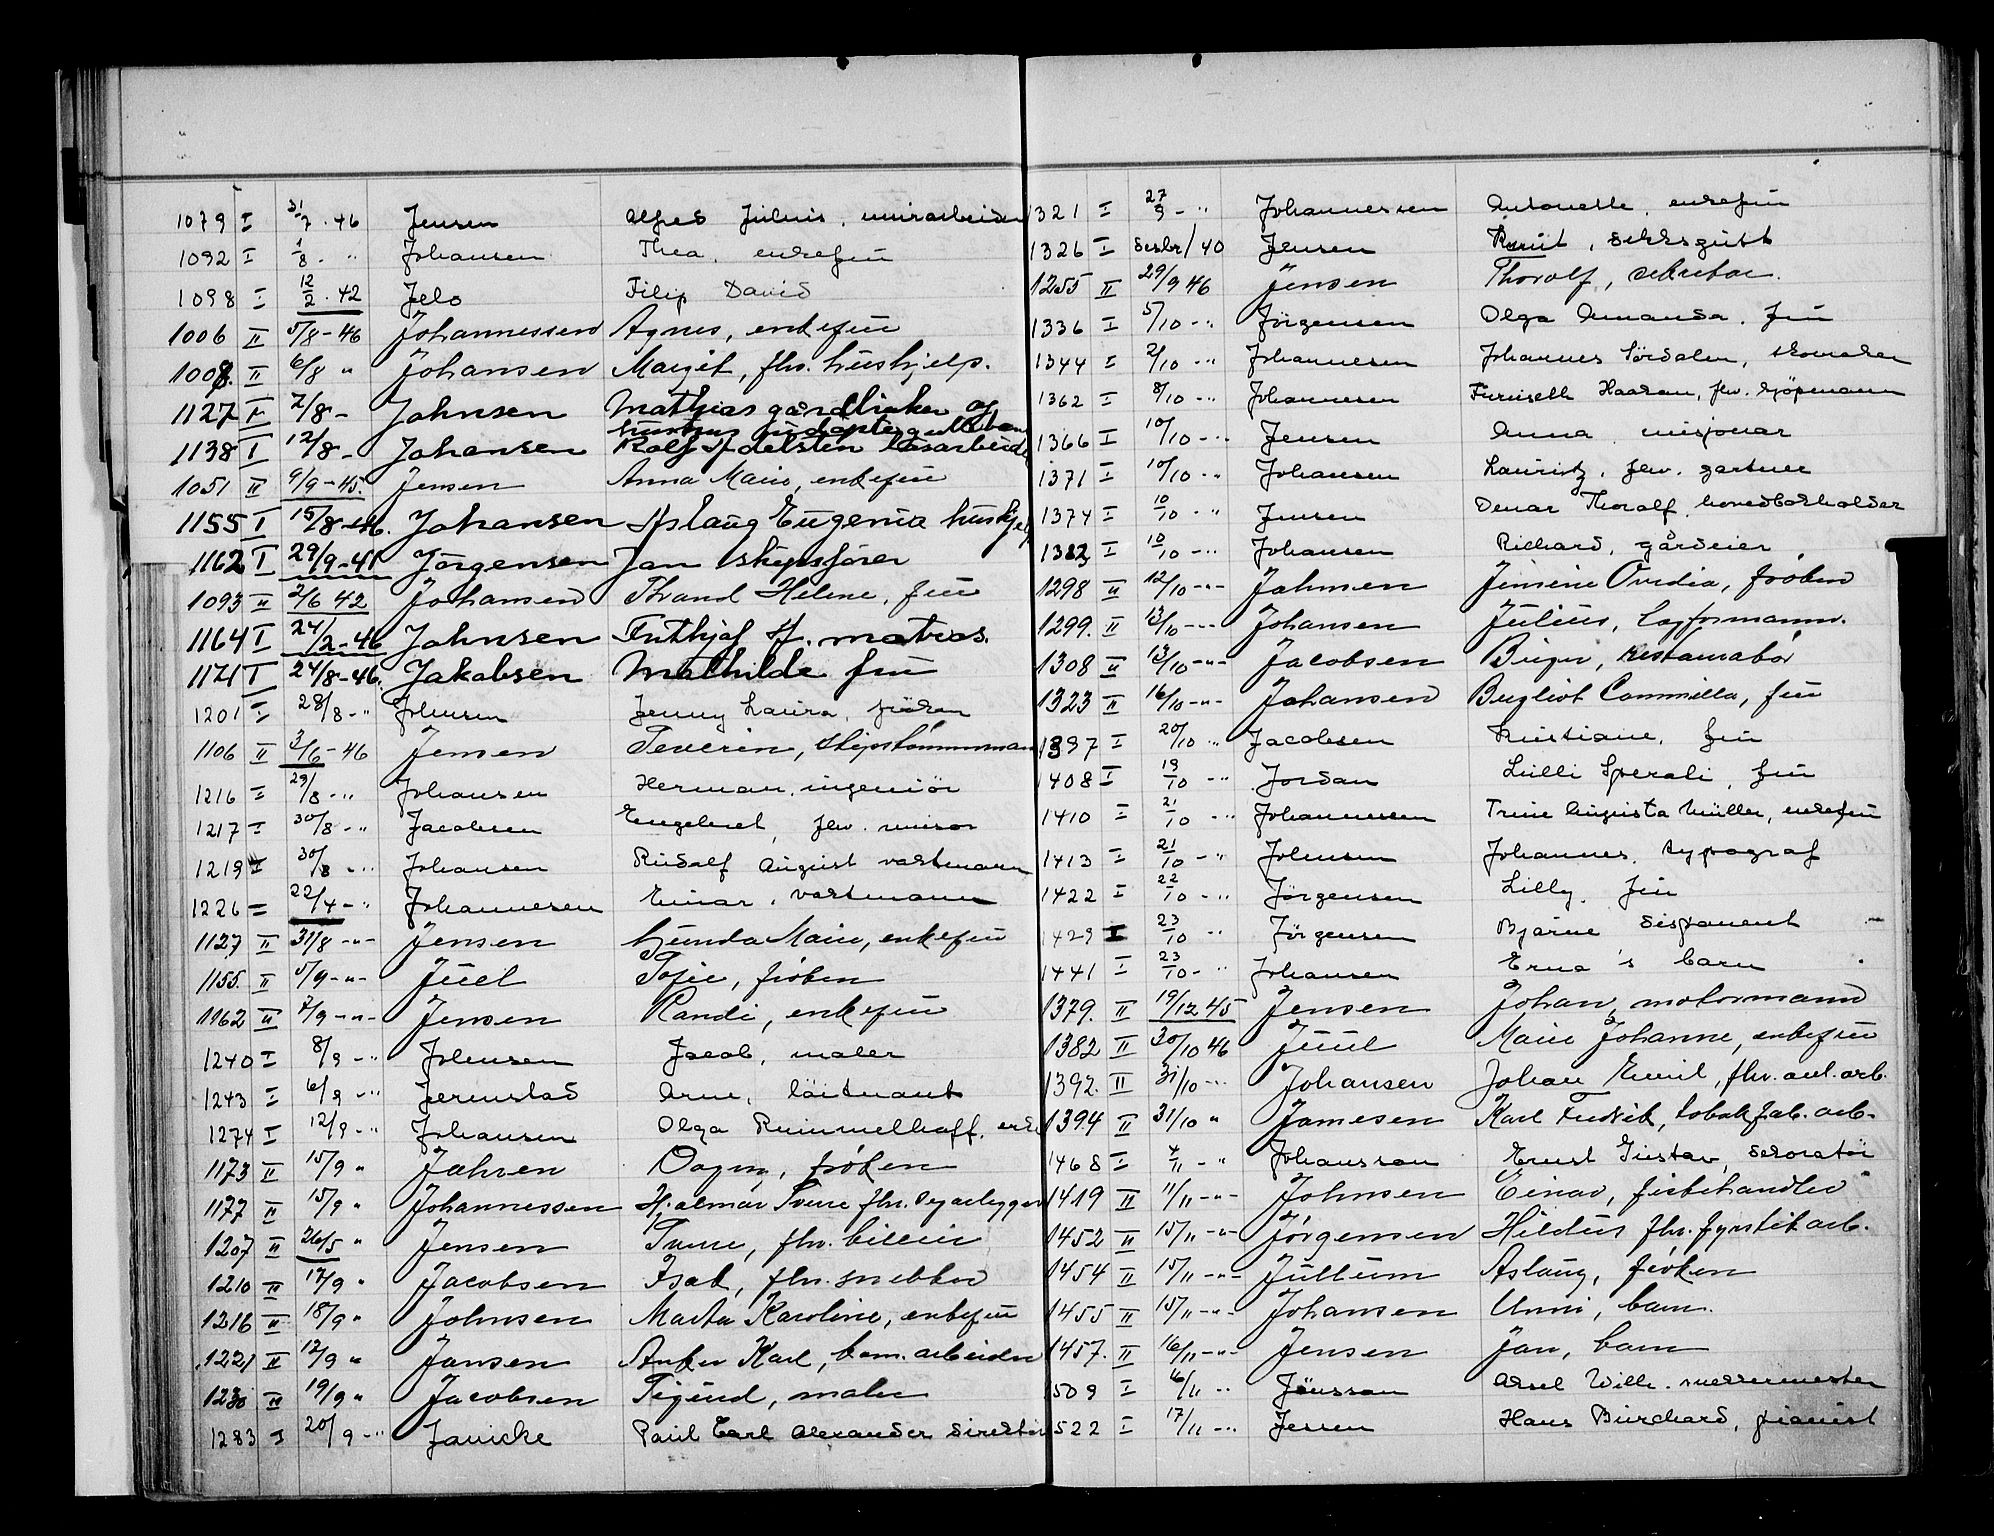 1079 I 31/7 · 46 Jensen Alfred Julius, murarbeider
1092 I 1/8 - " Johansen Thea, enkefru
1098 I 12/2 · 42 Jelo Filip David
1006 II 5/8 - 46 Johannessen Agnes, enkefru
1008. II 6/8 " Johansen Margit, fhv. hushjelp.
1127 I 7/8 - Johnsen Mathias gårdbruker og
1138 I 12/8 - Johansen Rolf Adelsten løsarbeide
1051 II 9/9 - 45. Jensen Anna Marie, enkefru
1155 I 15/8 - 46. Johansen Aslaug Eugenia hushjelp
1162 I 29/9 - 41 Jörgensen Jan skipsfører
1093 II 2/6 42 Johansen Thrand Helene, fru
1164 I 24/2 - 46 Johnsen Frithjof A. matros.
1171 I 24/8 - 46. Jakobsen Mathilde fru
1201 I 28/8 - " Johnsen Jenny Laura, frøken
1106 II 3/6 - 46 Jensen Severin, skipstømmermann
1216 I 29/8 - " Johansen Herman, ingeniör
1217 I 30/8 - " Jacobsen Engebret, fhv. murer
1219 I 30/8 - " Johansen Rudolf August vaktmann
1226 = 22/4 - " Johannesen Einar, vaktmann
1127 II 31/8 - " - Jensen Gunda Marie, enkefru
1155. II 5/9 - " - Juel Sofie, frøken
1162 II 7/9 - " - Jensen Randi, enkefru
1240 I 8/9 - " Johnsen Jacob, maler
1243 I 6/9 - " Jernstad Arne, löitnant
1274 I 12/9 - " Johansen Olga Rummelhoff, enke
1173 II 15/9 " Jahren Dagny, frøken
1177 II 15/9 " Johannessen Hjalmar Sverre fhv.
1207 II 26/5 " Jensen Sverre, fhv. bileier
1210 II 17/9 " Jacobsen Isak, fhv. snekker
1216 II 18/9 " Johnsen Marta Karoline, enkefru
1221 II 12/9 " Jansen Anker Karl, kom. arbeider
1230 II 19/9 " Jacobsen Sigurd, maler
1283 I 20/9 - " Janicke Paul Carl Alexander direktör
1321 I 27/9 - " Johannessen Antonette, enkefru
1326 I desbr/40 Jensen Knut, dekksgutt
1255 II 29/9 46 Jensen Thorolf, sekretær.
1336 I 5/10 - " Jörgensen Olga Amanda, fru
1344 I 2/10 - " Johannesen Johannes Sördalen, skomaker
1362 I 8/10 - " Johannesen Haakon, fhv. kjöpmann
1366 I 10/10 - " Jensen Anna, misjonær
1371 I 10/10 - " Johansen Lauritz, fhv. gartner
1374 I 10/10 - " Jensen Thoralf, hovedbokholder
1382 I 10/10 - " Johansen Richard, gårdeier
1298 II 12/10 - " - Johnsen Jensine Ovedia, frøken
1299. II 13/10 - " Johansen Julius, lagformann.
1308 II 13/10 - " - Jacobsen Birger, restauratør
1323 II 16/10 - " - Johansen Bergliot Cammilla, fru
1397 I 20/10 " Jacobsen Kristiane, fru
1408 I 19/10 - " Jordan Lulli Sperati, fru
1410 I 21/10 - " Johannessen Trine Augusta Müller, enkefru
1413 I 21/10 - " Johnsen Johannes, typograf
1422 I 22/10 - " Jörgensen Lilly, fru
1429 I 23/10 " Jörgensen Bjarne disponent
1441 I 23/10 - " Johansen Erna's barn
1379. II 19/12 45 Jensen Johan, motormann
1382 II 30/10 46 Juul Marie Johanne, enkefru
1392. II 31/10 - " Johansen Johan Emil, fhv. anl. arb.
1394 II 31/10 " Jamesen Karl Fredrik, tobakfab. arb.
1468 I 4/11 - " Johansson Ernst Gustav, dekoratör
1419 II 11/11 - " - Johnsen Einar, fiskehandler
1452 II 15/11 - " - Jörgensen Hildus fhv. fyrstikarb.
1454 II 15/11 - " - Jullum Aslaug, frøken
1455 II 15/11 - " - Johansen Unni, barn.
1457. II 16/11 - " - Jensen Jan, barn
509 I 6/11 " Jönsson Aksel Wilh.
522 I 17/11 - " Jessen Hans Burchard, pianist